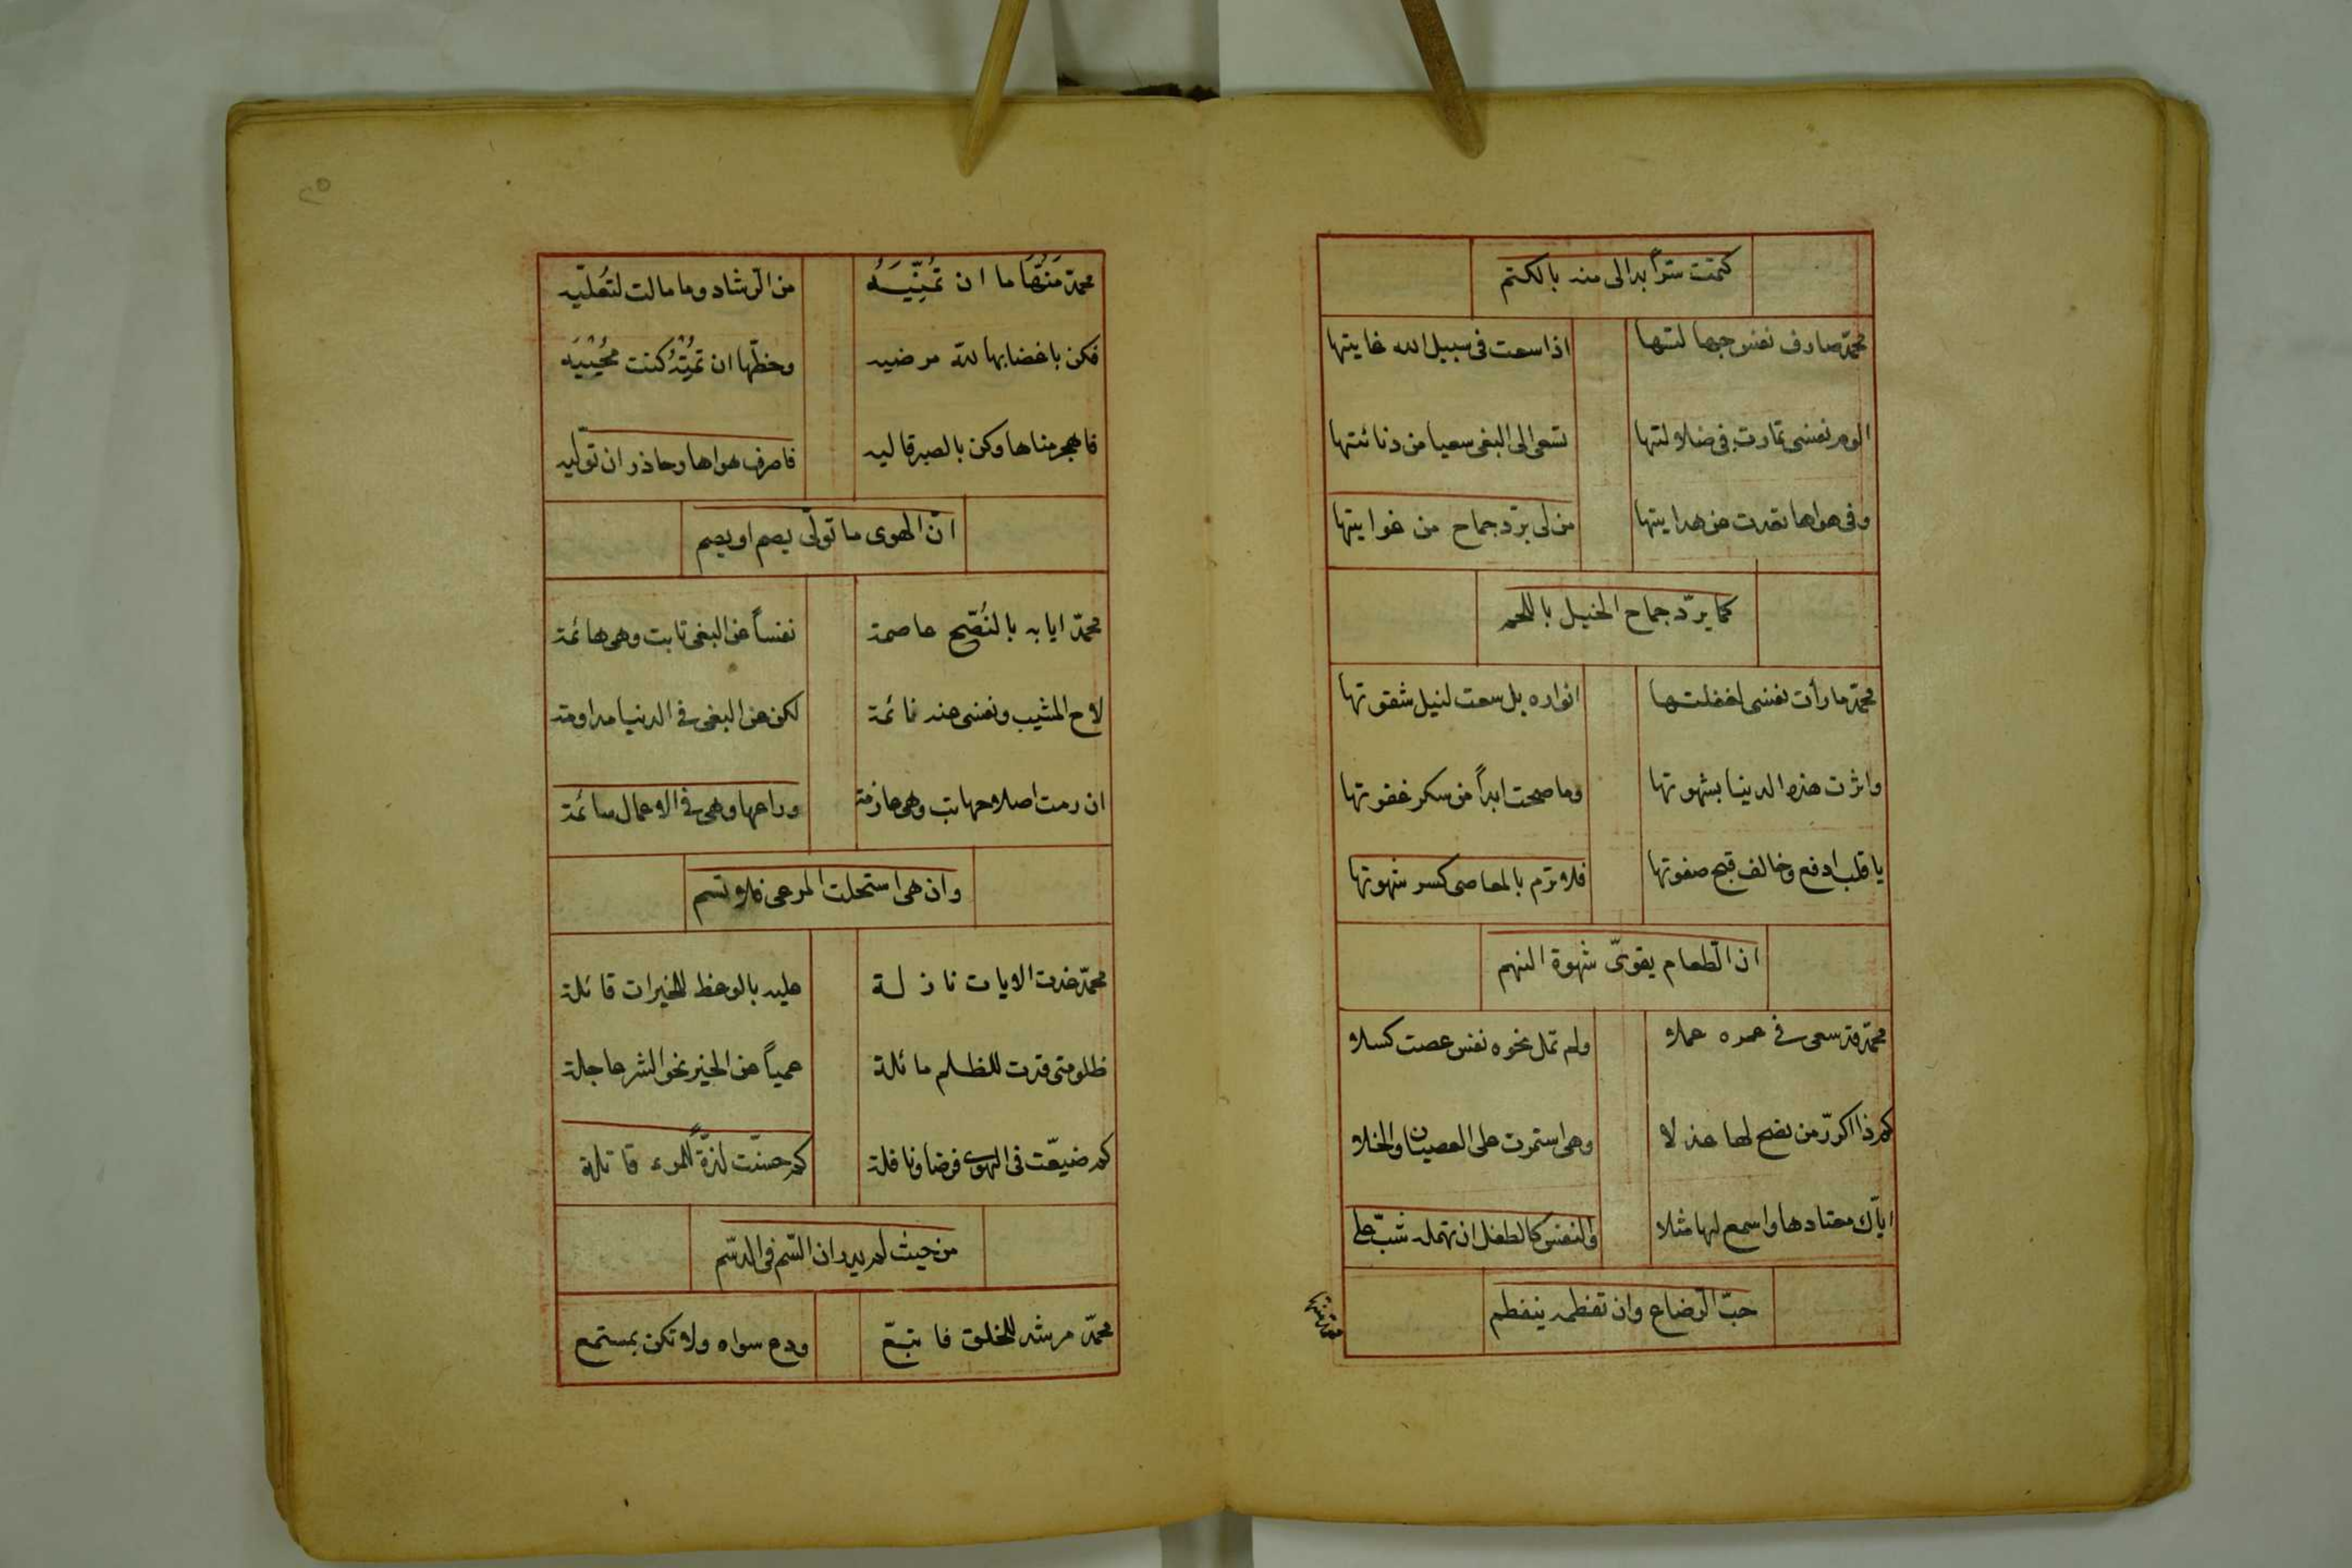 كتمت سرّاً بدا لى منه بالكتم
محمّد صارف نفس حبها لتها اذا سعت فى سبيل الله غايتها
الوم نفسى تمادت فى ضلالتها تسعى الى البغى سعيا من دنائتها
وفى هواها تعدت عن هدايتها من لى بردّ جماح من غوايتها
كما يردّ جماح الخيل باللجم
محمّد ما رأت نفسى لغفلتها انواره بل سعت لنيل شقوتها
واثرت هذه الدنيا بشهوتها وما صحت ابداً من سكر غفوتها
يا قلب ادفع وخالف قبح صفوتها فلا ترم بالمعاصى كسر شهوتها
ان الطعام يقوىّ شهوة النهم
محمّد قد سعى فى عمره عملا ولم تمل نحوه نفس عصت كسلا
كم ذا اكرّر من نصح لها عذلا وهى استمرت على العصيان والخلا
ايّاك معتادها واسمع لها مثلا والنفس كالطفل ان تهمله شبّ على
حبّ الرضاع وان تفطمه ينفطم
محمّد مَنُّهَا ما ان تُمَنِّيَهُ من الرشاد وما مالت لتعليه
فكن باغضابها لله مرضيه وحظّها ان تُمِتْهُ كنت مُحْيِيَه
فاهجر مناها وكن بالصبر قاليه فاصرف هواها وحاذر ان توّليه
انّ الهوى ما تولّى يصم او يصم
محمّد ايا به بالنُصّح عاصمة نفساً عن البغى تابت وهى هائمة
لاح المشيب ونفسى عنه نائمة لكن عن البغى فى الدنيا مداومة
ان رمت اصلاحها تب وهى عازمة وراعها وهى فى الاعمال سائمة
وان هى استحلت المرعى فلا تسم
محمّد غدت الايات نازلة عليه بالوعظ للخيرات قائلة
ظلومتى قدت للظلم مائلة عمياً عن الخير نحو الشر عاجلة
كم ضيعّت فى الهوى فرضا ونافلة كم حسنّت لذّةً للمرء قاتلة
من حيث لم يدر ان السّم فى الدسم
محمّد مرشد للخلق فاتبع ودع سواه ولا تكن بمستمع